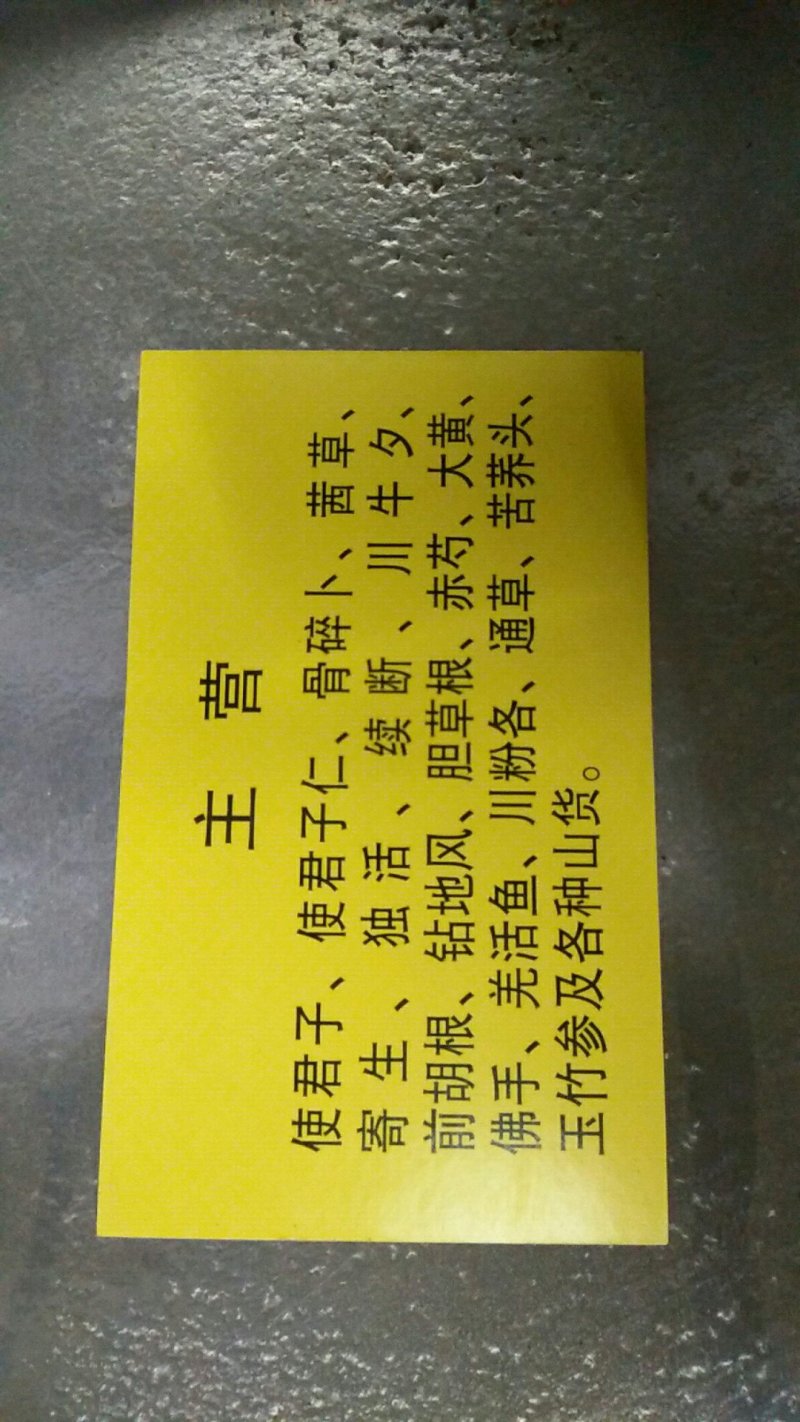 主 营
使君子、使君子仁、骨碎卜、茜草、
寄生、独活、续断、川牛夕、
前胡根、钻地风、胆草根、赤芍、大黄、
佛手、羌活鱼、川粉各、通草、苦荞头、
玉竹参及各种山货。